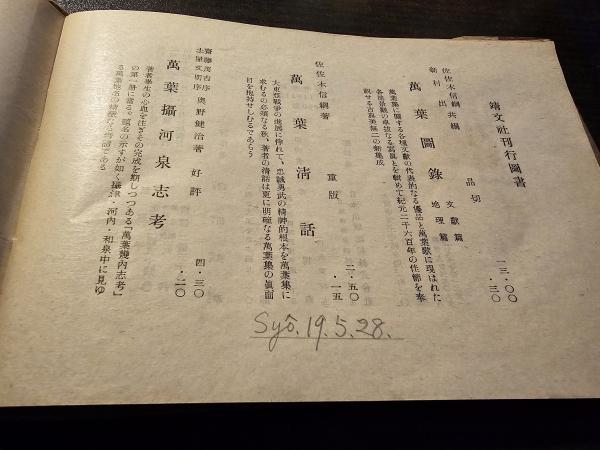 靖文社刊行圖書
佐佐木信綱共編
新村出
萬葉圖錄
文獻篇
地理篇
品切
一三・〇〇
・三〇
萬葉集に關する各種文獻の代表的なる優品と萬葉歌に現はれた
各地景觀の卓拔なる寫眞とを輯めて紀元二千六百年の佳節を奉
祝せる古典美無二の新集成
佐佐木信綱著
萬葉清話
重版
二・五〇
・一五
大東亞戰爭の進展に伴れて、忠誠勇武の精神的根本を萬葉集に
求むるの必須なる秋、著者の清話は更に明確なる萬葉集の眞面
目を抱持せしむるであらう
齋藤茂吉序
土屋文明序
奧野健治著
好評
萬葉攝河泉志考
四・三〇
・二〇
著者畢生の心血を注ぎその完成を期しつつある「萬葉畿內志考」
の第一册に當る。題名の示すが如く攝津・河內・和泉中に見ゆ
る萬葉地名の精緻なる考證である
Syô.19.5.28.